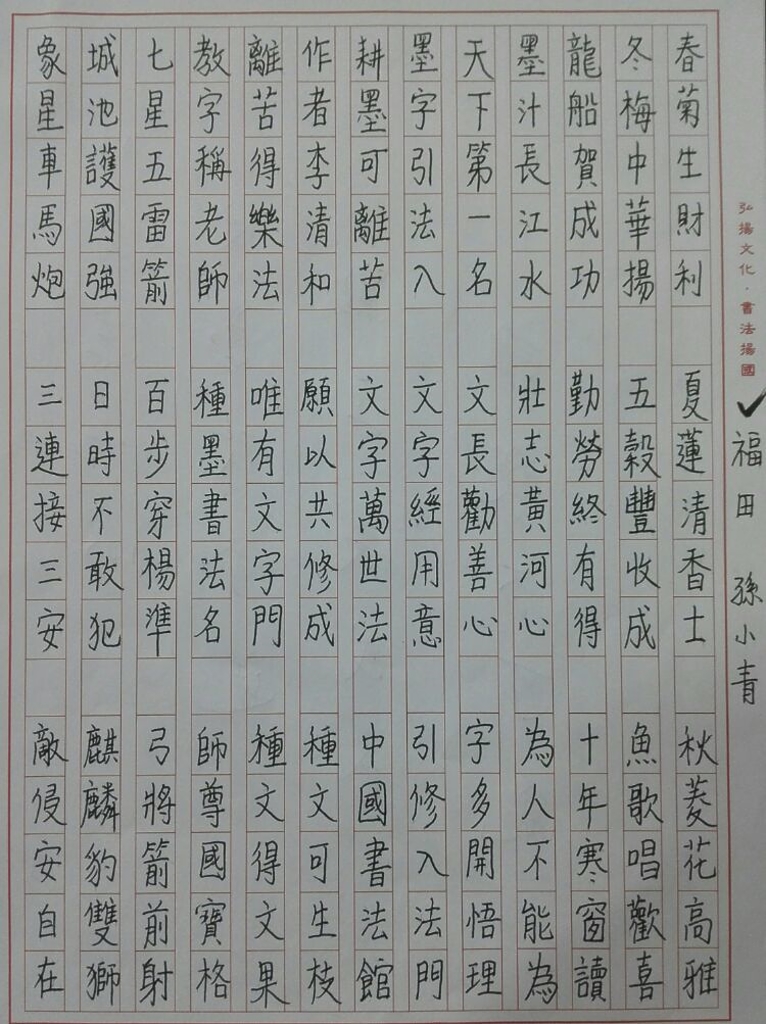 弘揚文化·書法揚國
福田 孫小青
春菊生財利 夏蓮清香士 秋菱花高雅
冬梅中華揚 五穀豐收成 魚歌唱歡喜
龍船賀成功 勤勞終有得 十年寒窗讀
墨汁長江水 壯志黃河心 為人不能為
天下第一名 文長勸善心 字多開悟理
墨字引法入 文字經用意 引修入法門
耕墨可離苦 文字萬世法 中國書法館
作者李清和 願以共修成 種文可生枝
離苦得樂法 唯有文字門 種文得文果
教字稱老師 種墨書法名 師尊國寶格
七星五雷箭 百步穿楊準 弓將箭前射
城池護國強 日時不敢犯 麒麟豹雙獅
象星車馬炮 三連接三安 敵侵安自在